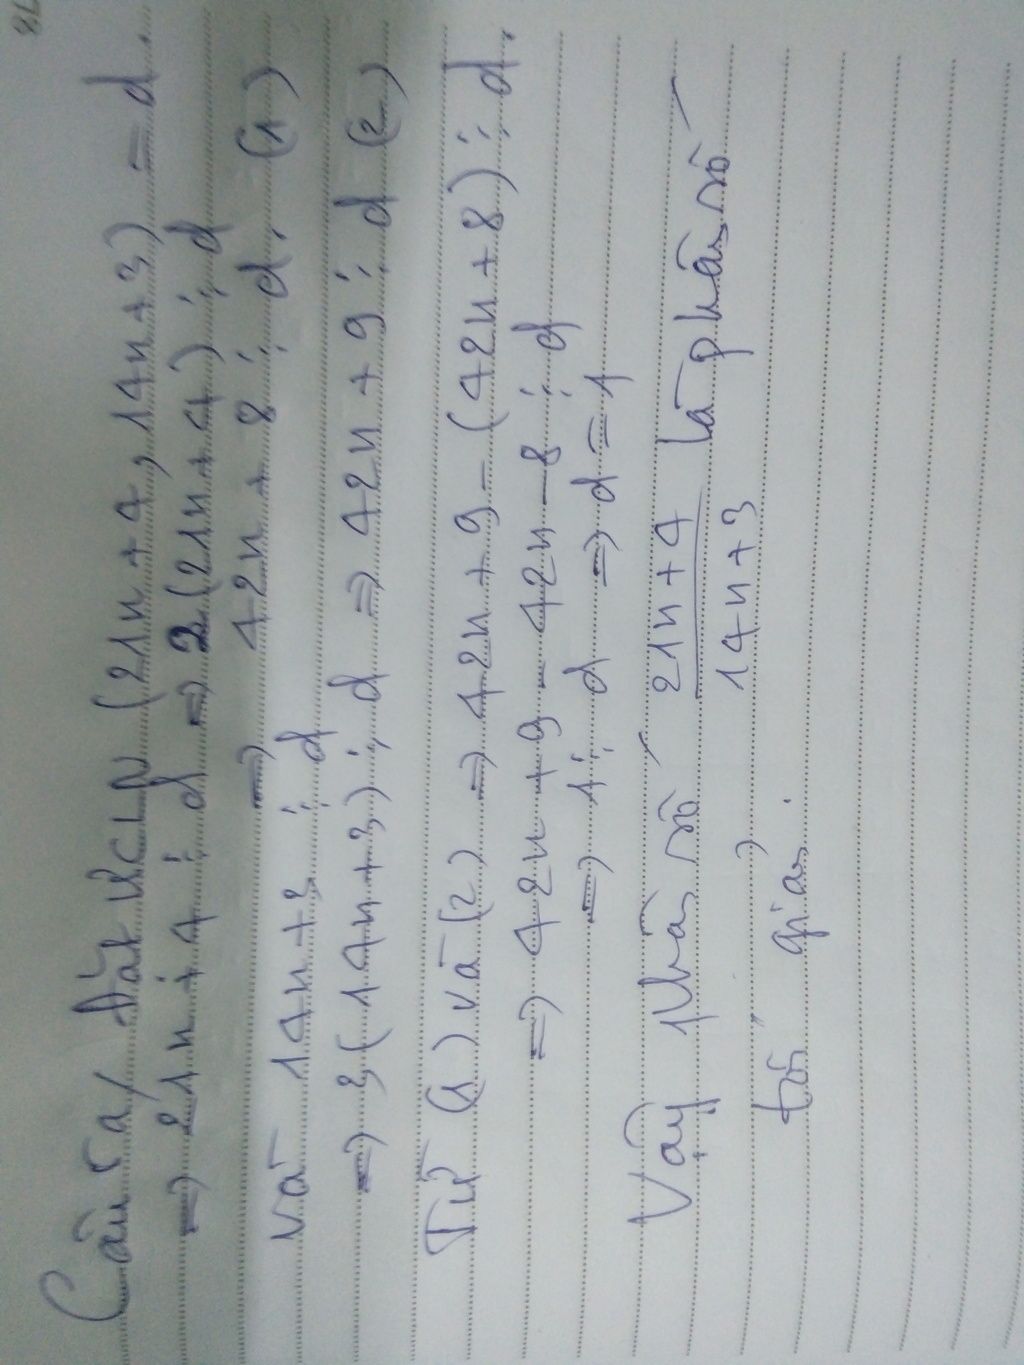 Câu 5 a, Đặt ƯCLN (21n + 4, 14n + 3) = d.
=> 21n + 4 ⋮ d => 2(21n + 4) ⋮ d
=> 42n + 8 ⋮ d. (1)
và 14n + 3 ⋮ d
=> 3(14n + 3) ⋮ d => 42n + 9 ⋮ d (2)
Từ (1) và (2) => 42n + 9 - (42n + 8) ⋮ d.
=> 42n + 9 - 42n - 8 ⋮ d
=> 1 ⋮ d => d = 1
Vậy phân số 21n + 4 / 14n + 3 là phân số
tối giản.